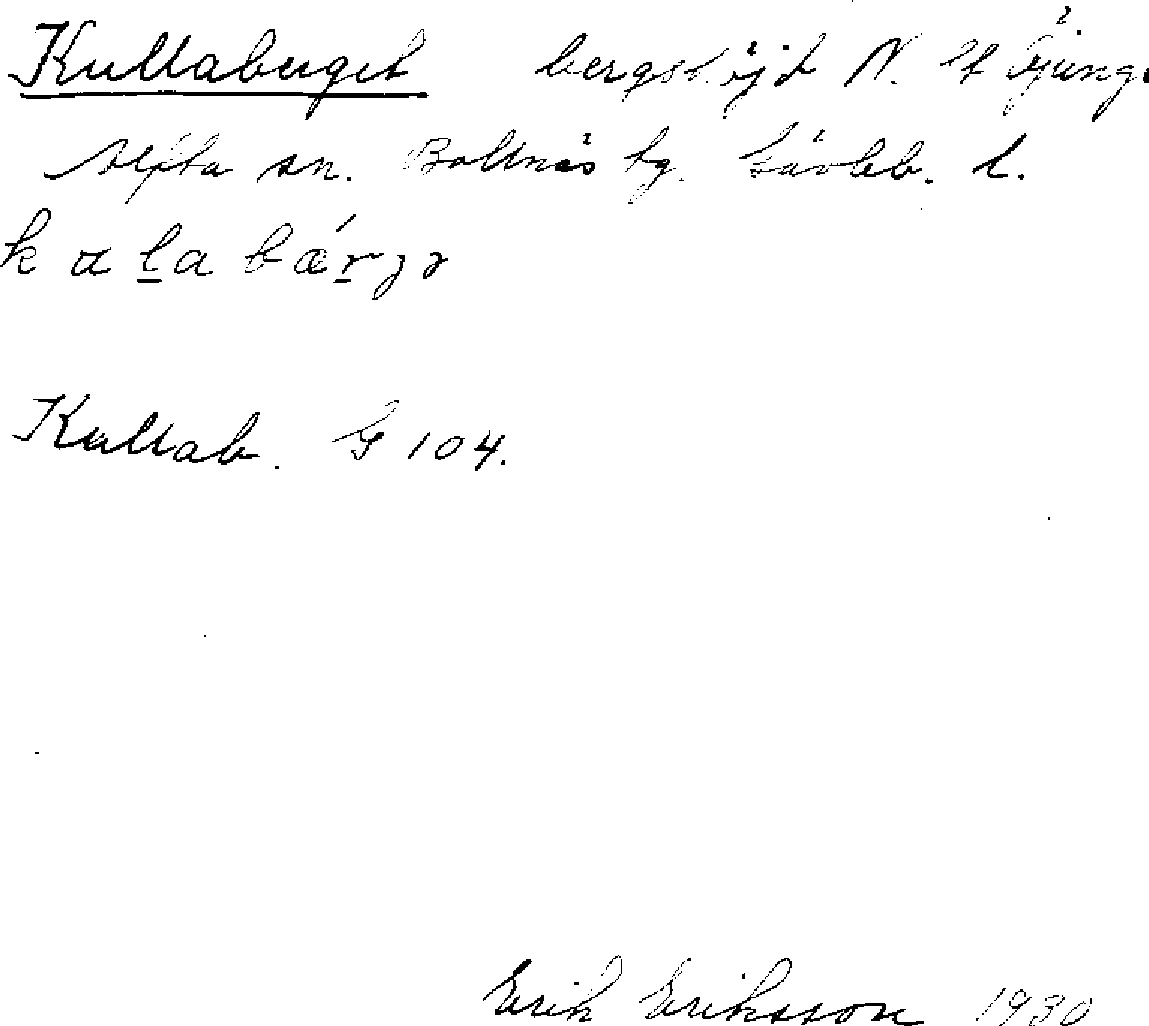 Kullaberget bergshöjd N. of
Alfta sn. Bollnäs tg. Gävleb. l.
k α l a b ǽ r ȷ ə
Kullab. G 104.
Erik Eriksson 1930